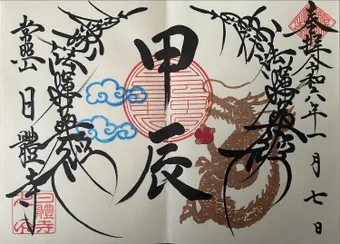 奉拝 令和六年一月七日
南無妙法蓮華経
甲辰
南無妙法蓮華経
日體寺